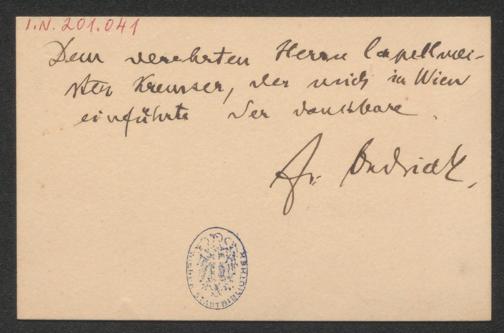 I.N. 201.041
Dem verehrten Herrn Capellmei-
ster Kremser, der mich in Wien
einführte der dankbare
Fr. Ondřiček.